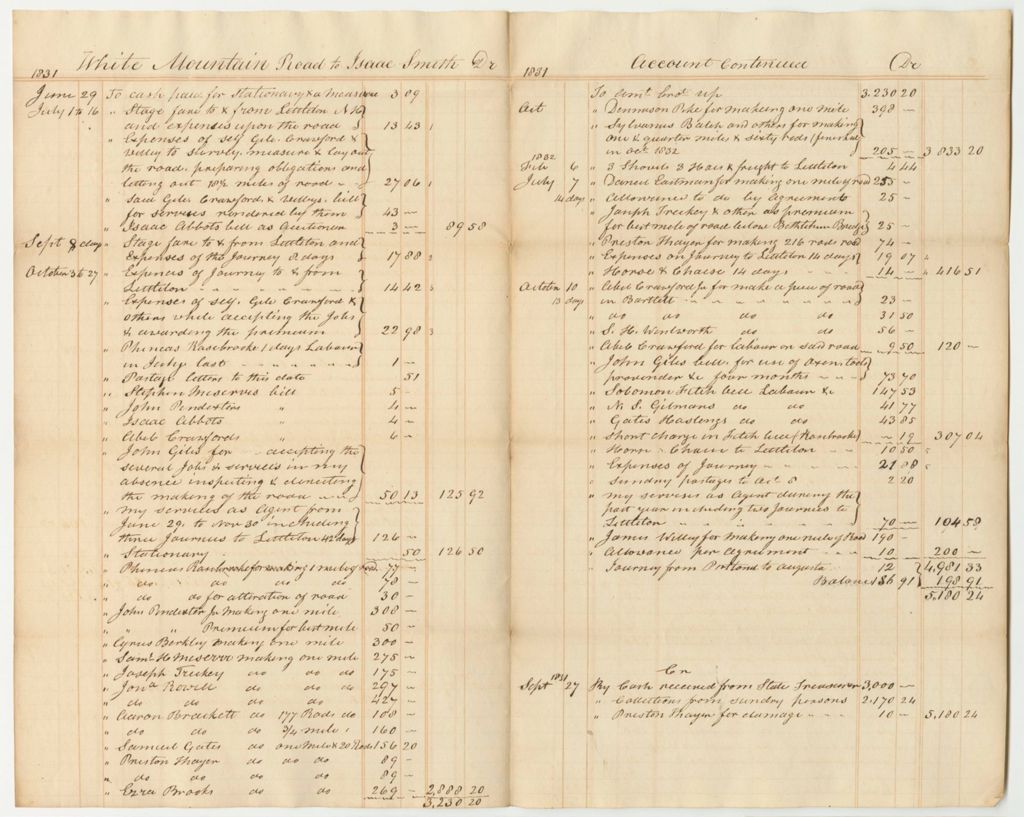 1831 White Mountain Road to Isaac Smith Dr
June 29 To cash paid for Stationary & a measure 3 09
July 1 to 16 " Stage fare to & from Littleton N H
and expenses upon the road 13 43
" Expenses of self Gile Crawford &
Willey to survey, measure & lay out
the road, preparing obligations and
letting out 18½ miles of road 27 06
" Said Giles, Crawford, & Willeys bill
for services rendered by them 43 —
" Isaac Abbots bill as Auctioneer 3 — 89 58
Sept 8 days " Stage fare to & from Littleton and
Expenses of the Journey 8 days 17 88
October 3 to 27 " Expences of Journey to & from
Littleton 14 42
" Expense of self, Gile Crawford &
others while accepting the Jobs
& awarding the premium 22 98
" Phineas Rosebrooke 1 days Labour
in July last 1 —
" Postage letters to this date 51
" Stephen Meserves bill 5 —
" John Pendexters " 4 —
" Isaac Abbots " 4 —
" Abel Crawfords " 6 —
" John Giles for accepting the
several Jobs & services in my
absence inspecting & directing
the making of the road 50 13 125 92
" my services as Agent from
June 29, to Nov 30 including
three Journeys to Littleton 42 days 126 —
" Stationary 50 126 50
" Phineas Rosebrooke for making 1 mile of road 77 —
" do do do do 48 —
" do do for alteration of road 30 —
" John Pendexter Jr Making one mile 308 —
" " " Premium for best mile 50 —
" Cyrus Berkley making one mile 300 —
" Saml H Meserve making one mile 275 —
" Joseph Trickey do do do 175 —
" Jona Rowell do do do 297 —
" do do do do 427 —
" Aaron Brackett do 177 Rods do 108 —
" do do do 3/4 mile 160 —
" Samuel Gates do one mile & 20 Rods 156 20
" Preston Thayer do do do 89 —
" do do do do 89 —
" Ezra Brooks do do 269 — 2,888 20
3,230 20
1831 Account Continued Dr
To amt brot up 3,230 20
Oct " Dennison Pike for making one mile 398 —
" Sylvanus Balch and others for making
one & quarter miles & sixty rods (finished
in Oct 1832 205 — 3 833 20
1832
Feb 6 " 3 Shovels 3 Hoes & freight to Littleton 4 44
July 7 " Daniel Eastman for making one mile of road 255 —
14 days " Allowance to do by agreement 25 —
" Joseph Trickey & other as premium
for best mile of road below Bethlehem Bridge 25 —
" Preston Thayer for making 216 rods road 74 —
" Expenses on Journey to Littleton 14 days 19 07
" Horse & Chaise 14 days 14 — 416 51
October 10 " Abel Crawford Jr for make a piece of road
13 days in Bartlett 23 —
" do do do do 31 50
" S. H. Wentworth do do 56 —
" Abel Crawford for labour on said road 9 50 120 —
" John Giles bill for use of oxen, tools
provender &c four months 73 70
" Solomon Fitch bill Labour &c 147 53
" N. S. Gilmans do do 41 77
" Gates Hastings do do 43 85
" Short charge in Fitch bill (Rosebrooke) 19 307 04
" Horse & Chaise to Littleton 10 50
" Expenses of Journey 21 88
" Sunday postages to Oct 8 2 20
" my services as Agent during the
past year including two Journeys to
Littleton 70 — 104 58
" James Willey for Making one mile of Road 190 —
" Allowance per agreement 10 200 —
" Journey from Portland to Augusta 12 4,981 33
Balance 186 91 198 91
5,180 24
Cr
1831
Sept 27 By Cash received from State Treasurer 3,000 —
" Collections from sundry persons 2,170 24
" Preston Thayer for damage 10 — 5,180 24